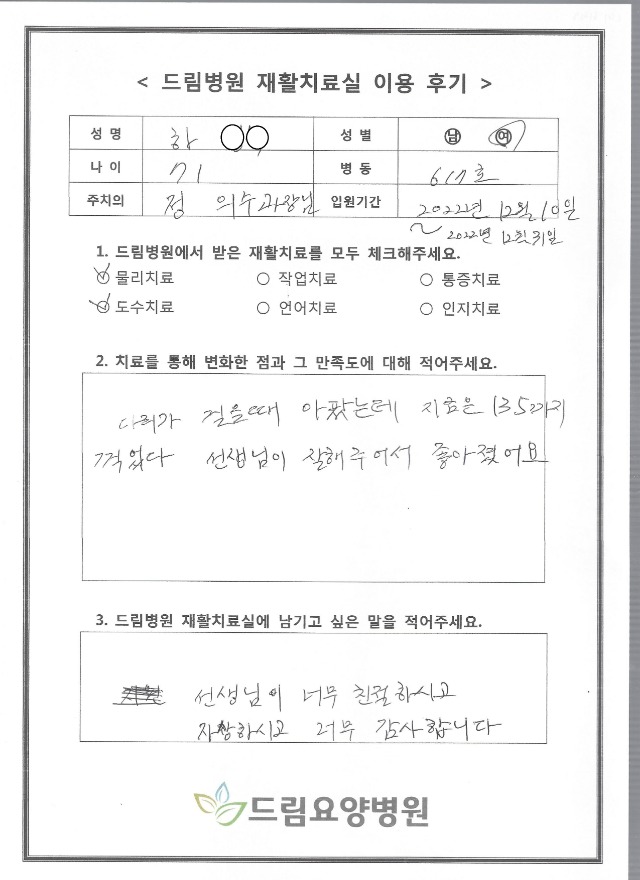 < 드림병원 재활치료실 이용 후기 >
성 명 하 ○○ 성 별 남 여
나 이 71 병 동 617호
주치의 정 의수과장님 입원기간 2022년 12월 10일
~ 2022년 12월 31일
1. 드림병원에서 받은 재활치료를 모두 체크해주세요.
물리치료 작업치료 통증치료
도수치료 언어치료 인지치료
2. 치료를 통해 변화한 점과 그 만족도에 대해 적어주세요.
다리가 걸을때 아팠는데 지금은 135까지
꺽었다 선생님이 잘해주어서 좋아졌어요
3. 드림병원 재활치료실에 남기고 싶은 말을 적어주세요.
선생님이 너무 친절하시고
자상하시고 너무 감사합니다
드림요양병원